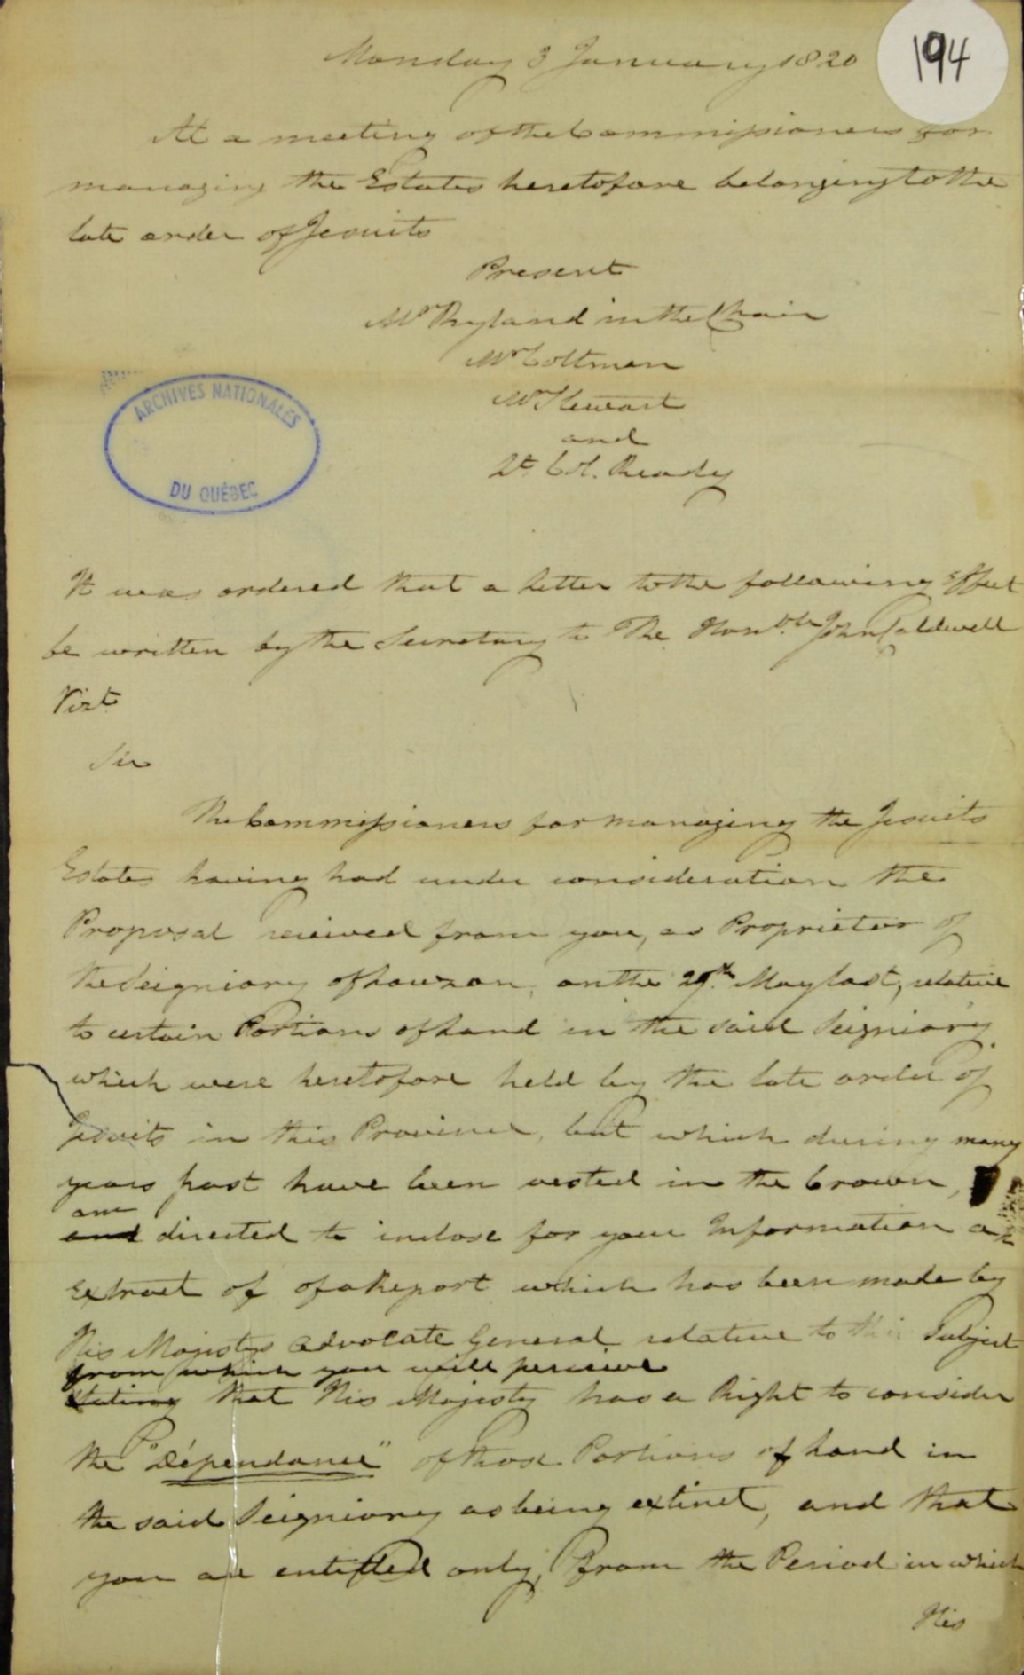 194
Monday 3 January 1820
At a meeting of the Commissioners for
managing the Estates heretofore belonging to the
late order of Jesuits
Present
Mr Ryland in the Chair
Mr Coltman
Mr Stewart
and
Lt. Col. Ready
ARCHIVES NATIONALES
DU QUÉBEC
It was ordered that a letter to the following Effect
be written by the Secretary to The Honble John Caldwell
Vizt
Sir
The Commissioners for managing the Jesuits
Estates having had under consideration the
Proposal received from you, as Proprietor of
the Seigniory of Lauzon, on the 29th May last, relative
to certain Portions of Land in the said Seigniory
which were heretofore held by the late order of
Jesuits in this Province, but which during many
years past have been vested in the Crown, I
am
and directed to inclose for your Information an
Extract of of a Report which has been made by
His Majestys Advocate General relative to this Subject
from which you will perceive
stating that His Majesty has a Right to consider
the "Dépendance" of those Portions of Land in
the said Seigniory as being extinct, and that
you are entitled only, from the Period in which
His